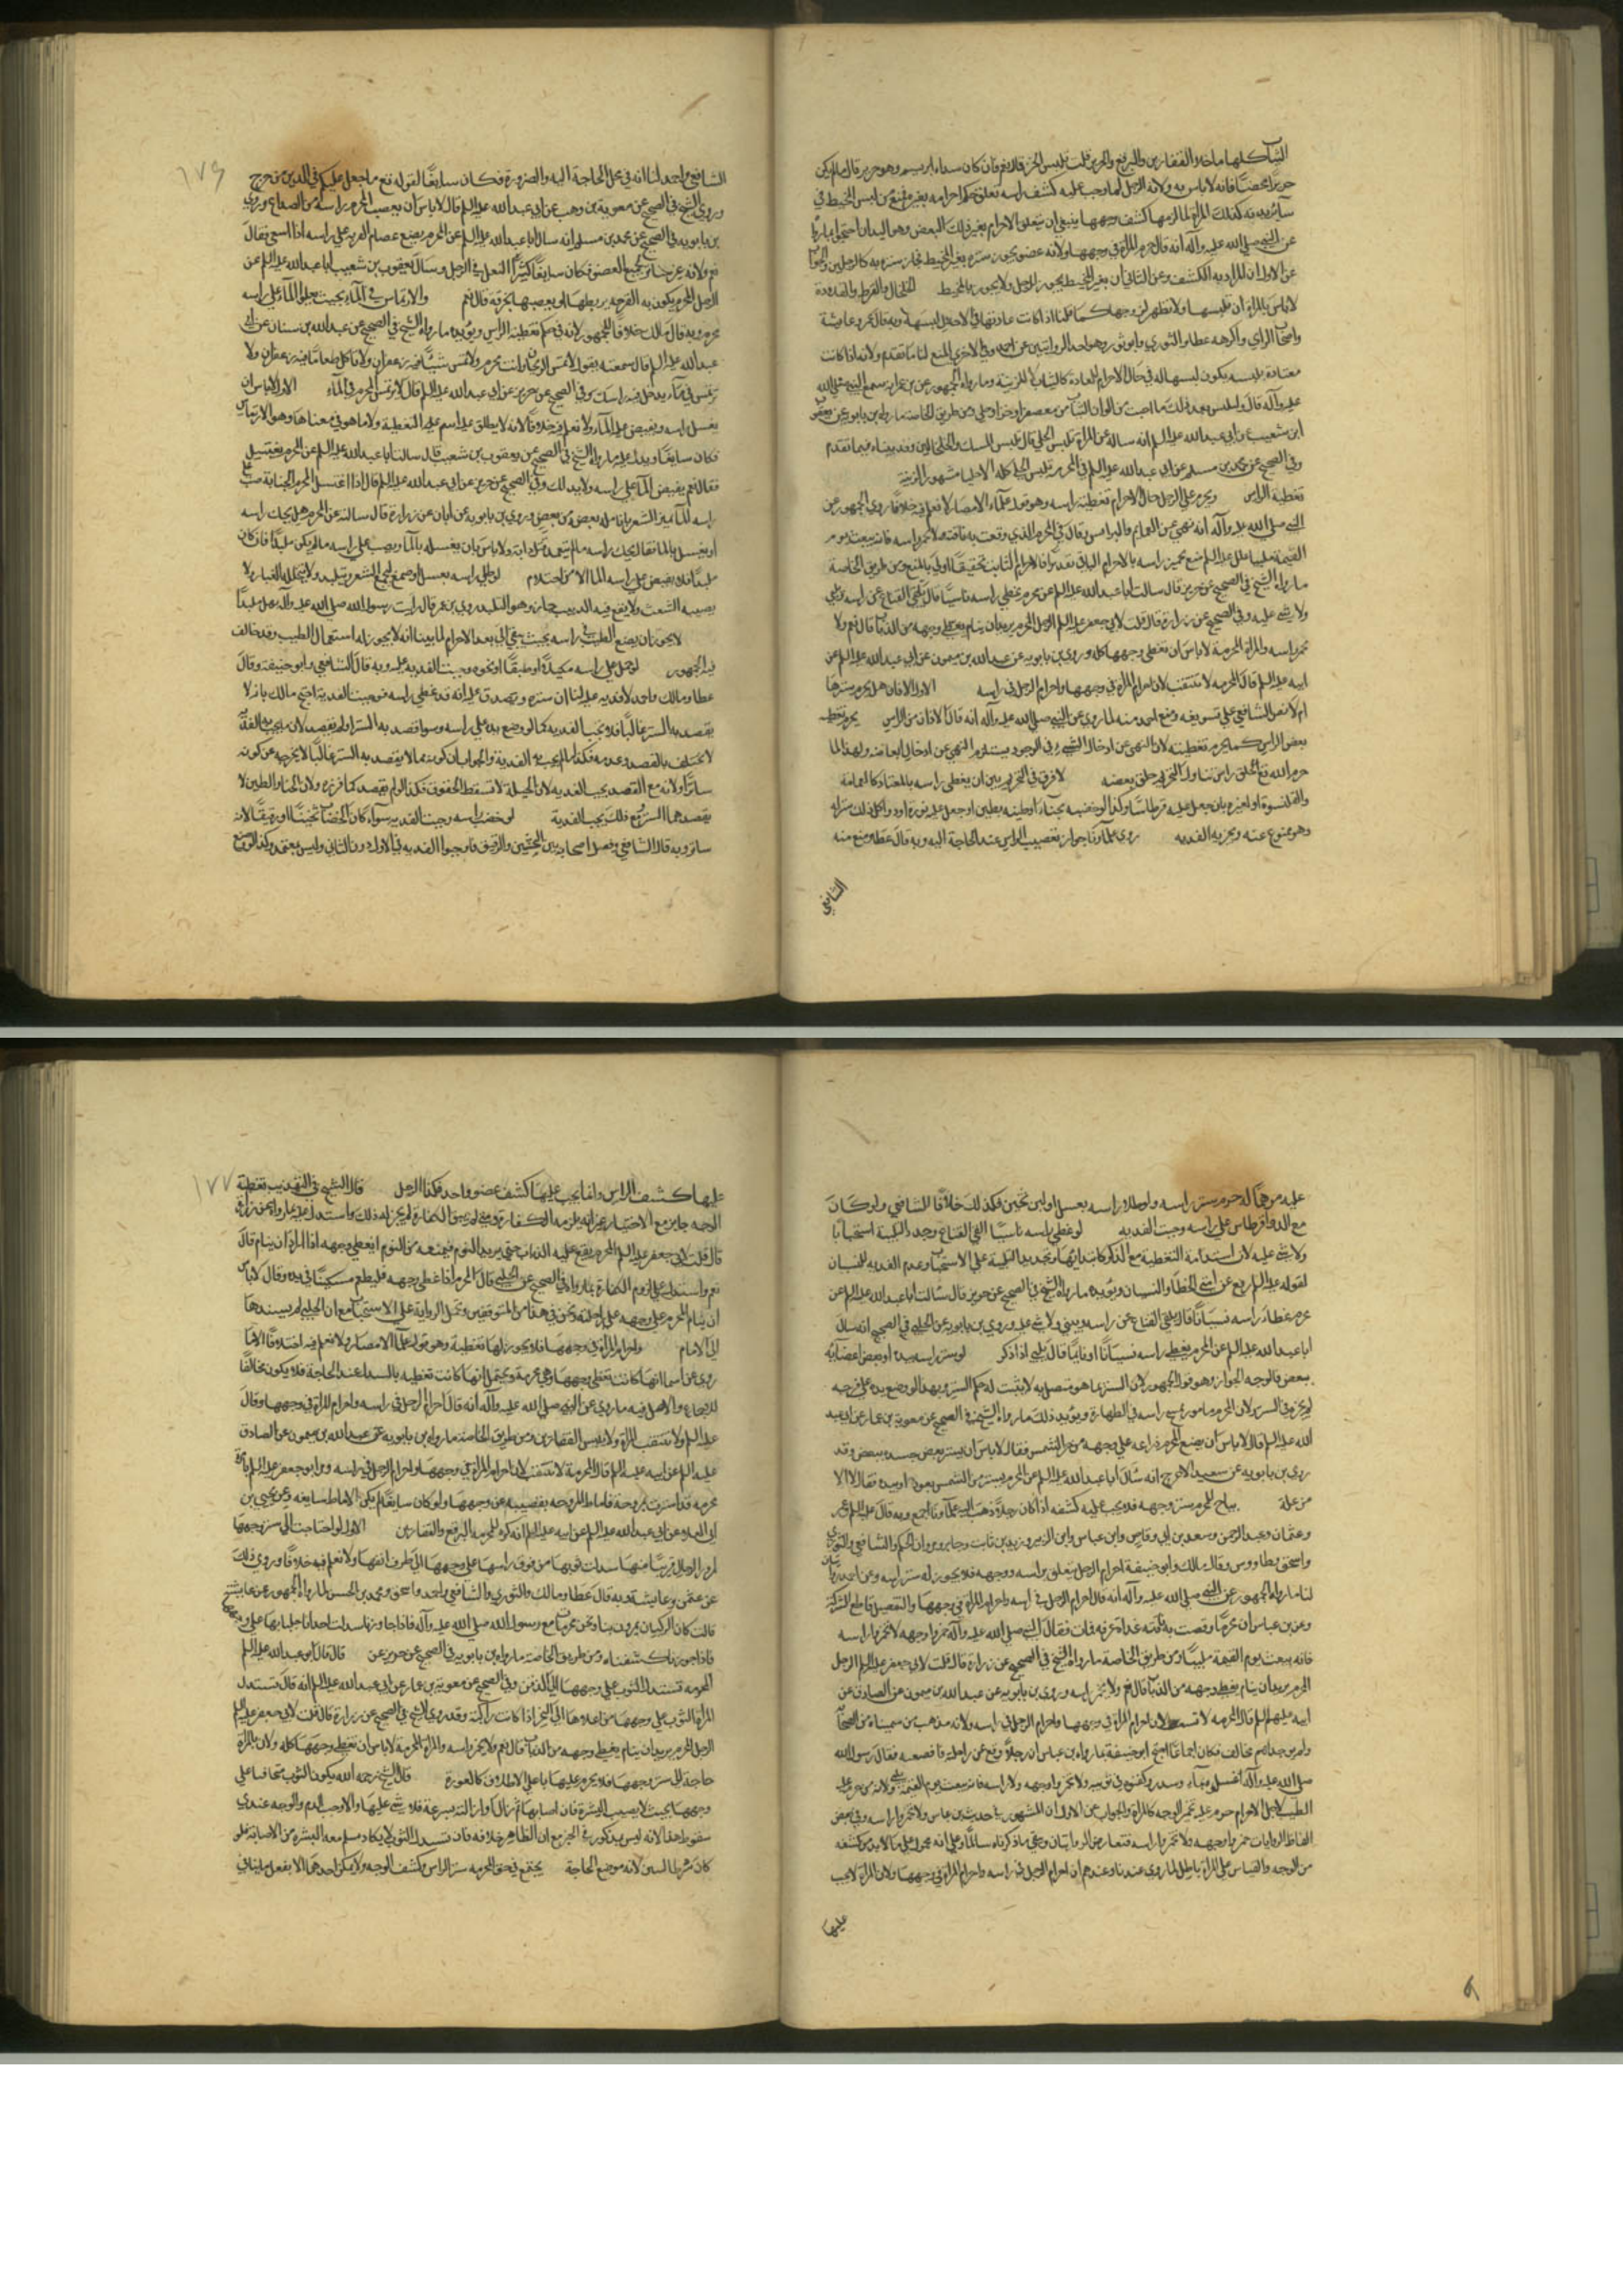 الثياب كلها ما خلا القفازين والبرقع والحرير قلت تلبس الخز قال نعم قلت فان كان سداه ابريسم وهو حرير قال ما لم يكن
حريرا محضا فانه لا باس به ولانه الرجل لما وجب عليه كشف راسه تعلق حكم احرامه بغيره فمنع من لبس المخيط في
ساير بدنه كذلك المراة لما لزمها كشف وجهها ينبغي ان يتعلق الاحرام بغير ذلك البعض وهو اليدان احتجوا بما روي
عن النبي صلى الله عليه وآله انه قال حرم المراة في وجهها ولانه عضو يجوز ستره بغير المخيط فجاز ستره به كالرجلين والجواب
عن الاول ان المراد به الكشف وعن الثاني ان بغير المخيط يجوز للرجل ولا يجوز بالمخيط الخلخال والقرط والقلادة
لا باس بالمراة ان تلبسها ولا تظهر لزوجها
واصحاب الراي وكرهه عطا والثوري وابو ثور وهو احد الروايتين عن احمد وفي الاخرى المنع لنا ما تقدم ولانه اذا كانت
معتادة بلبسه يكون لبسها له في حال الاحرام للعادة كالثياب لا للزينة وما رواه الجمهور عن بن عمر انه سمع النبي صلى الله
عليه وآله قال ولتلبس بعد ذلك ما احبت من الوان الثياب من معصفر او خز او حلي ومن طريق الخاصة ما رواه بن بابويه عن يعقوب
ابن شعيب عن ابي عبد الله عليه السلم انه ساله عن المراة تلبس الحلي قال تلبس المسك والخلخالين وقد بيناه فيما تقدم
وفي الصحيح عن محمد بن مسلم عن ابي عبد الله عليه السلم في المحرمة تلبس الحلي كله الا حليا مشهورا لزينة
تغطية الراس ويحرم على الرجل حال الاحرام تغطية راسه وهو قول علماء الامصار لا نعلم فيه خلافا روى الجمهور عن
النبي صلى الله عليه وآله انه نهى عن العمايم والبرانس وقال في المحرم الذي وقعت به ناقته لا تخمروا راسه فانه يبعث يوم
القيمة ملبيا علل عليه السلم منع تخمير راسه بالاحرام الباقي تقديرا فالاحرام الثابت تحقيقا اولى بالمنع ومن طريق الخاصة
ما رواه الشيخ في الصحيح عن حريز قال سالت ابا عبد الله عليه السلم عن محرم غطى راسه ناسيا قال يلقي القناع عن راسه ويلبي
ولا شي عليه وفي الصحيح عن زرارة قال قلت لابي جعفر عليه السلم الرجل المحرم يريد ان ينام يغطي وجهه من الذباب قال نعم ولا
يخمر راسه والمراة المحرمة لا باس ان تغطي وجهها كله وروى بن بابويه عن عبد الله بن ميمون عن ابي عبد الله عليه السلم عن
ابيه عليه السلم قال المحرمة لا تتنقب لان احرام المراة في وجهها واحرام الرجل في راسه الاول الاذان هل يحرم سترها
ام لا نص الشافعي على تسويغه ومنع احمد منه لما روي عن النبي صلى الله عليه وآله انه قال الاذنان من الراس يحرم تغطية
بعض الراس كما يحرم تغطيته لان النهي عن ادخال الشي في الوجود يستلزم النهي عن ادخال ابعاضه ولهذا لما
حرم الله تع حلق راس تناول التحريم حلق بعضه لا فرق في التحريم بين ان يغطى راسه بالمعتاد كالعمامة
والقلنسوة او بغيره بان جعل عليه قرطاسا وكذا لو خضبه بحناء او طينه بطين او جعل عليه نورة او دواء كل ذلك ستر له
وهو ممنوع عنه وتجب به الفدية روى علماؤنا جواز تعصيب الراس عند الحاجة اليه وبه قال عطا ومنع منه
الشافعي
١٧٦
الشافعي واحمد لنا انه في محل الحاجة اليه والضرورة فكان سايغا لقوله تع ما جعل عليكم في الدين من حرج
وروى الشيخ في الصحيح عن معوية بن وهب عن ابي عبد الله عليه السلم قال لا باس ان يعصب المحرم راسه من الصداع وروى
بن بابويه في الصحيح عن محمد بن مسلم انه سال ابا عبد الله عليه السلم عن المحرم يضع عصام القربة على راسه اذا استسقى فقال
نعم ولانه غير ساتر لجميع العضو فكان سايغا كستر النعل في الرجل وسال يعقوب بن شعيب ابا عبد الله عليه السلم عن
الرجل المحرم يكون به القرحة يربطها او يعصبها بخرقة قال نعم والارتماس في الماء بحيث يعلو الماء على راسه
محرم وبه قال مالك خلافا للجمهور لانه في حكم تغطية الراس ويؤيده ما رواه الشيخ في الصحيح عن عبد الله بن سنان عن ابي
عبد الله عليه السلم قال سمعته يقول لا تمس الريحان وانت محرم ولا تمس شيئا فيه زعفران ولا تاكل طعاما فيه زعفران ولا
ترتمس في ماء يدخل فيه راسك وفي الصحيح عن حريز عن ابي عبد الله عليه السلم قال لا يرتمس المحرم في الماء الاول لا باس ان
يغسل راسه ويفيض عليه الماء ولا نعلم فيه خلافا لانه لا يطلق عليه اسم التغطية ولا ما هو في معناها وهو الارتماس
فكان سايغا ويدل عليه ما رواه الشيخ في الصحيح عن يعقوب بن شعيب قال سالت ابا عبد الله عليه السلم عن المحرم يغتسل
فقال نعم يفيض الماء على راسه ولا يدلكه وفي الصحيح عن حريز عن ابي عبد الله عليه السلم قال اذا اغتسل المحرم للجنابة صب على
راسه الماء يميز الشعر بانامله بعضه من بعض وروى بن بابويه عن ابان عن زرارة قال سالته عن المحرم هل يحك راسه
او يغسل بالماء فقال يحك راسه ما لم يتعمد قتل دابة ولا باس بان يغتسل بالماء ويصب على راسه ما لم يكن ملبدا فان كان
ملبدا فلا يفيض على راسه الماء الا من احتلام لو طلى راسه بعسل او صمغ ليجمع الشعر ويتلبد ولا يتخلله الغبار ولا
يصيبه الشعث ولا يقع فيه الدبيب جاز وهو التلبيد روى بن عمر قال رايت رسول الله صلى الله عليه وآله يهل ملبدا
لا يجوز ان يضع الطيب في راسه بحيث يبقى الى بعد الاحرام لما بينا انه لا يجوز له استعمال الطيب وقد خالف
فيه الجمهور لو حمل على راسه مكتلا او طبقا او نحوه وجبت الفدية عليه وبه قال الشافعي وابو حنيفة وقال
عطا ومالك واحمد لا فدية عليه لنا ان ستره ويصدق عليه انه قد غطى راسه فوجبت الفدية احتج مالك بان لا
يقصد به الستر غالبا فلا تجب الفدية كما لو وضع يده على راسه وسوا قصد به الستر او لم يقصد لان ما يجب به الفدية
لا يختلف بالقصد وعدمه فكذا ما لم يجب به الفدية والجواب ان كونه مما لا يقصد به الستر غالبا لا يخرجه عن كونه
ساترا ولانه مع القصد يجب الفدية لان الحيلة لا تسقط الحقوق فكذا لو لم يقصد كما قرره ولان الحناء والطين لا
يقصد بهما الستر ومع ذلك يجب الفدية لو خضب راسه وجبت الفدية سواء كان الخضاب ثخينا او رقيقا لانه
ساتر وبه قال الشافعي وفصل اصحابه بين الثخين والرقيق فاوجبوا الفدية في الاول دون الثاني وليس بمعتمد وكذا لو وضع
عليه مرهما له جرم ستر راسه ولو طلى راسه بعسل او لبن ثخين فكذلك خلافا للشافعي ولو كان
مع الدواء قرطاس على راسه وجبت الفدية لو غطى راسه ناسيا القى القناع وجدد التلبية استحبابا
ولا شي عليه لان استدامة التغطية مع الذكر كابتدائها وتجديد التلبية على الاستحباب وعدم الفدية للنسيان
لقوله عليه السلم رفع عن امتي الخطا والنسيان ويؤيده ما رواه الشيخ في الصحيح عن حريز قال سالت ابا عبد الله عليه السلم عن
محرم غطى راسه نسيانا قال يلقي القناع عن راسه ويلبي ولا شي عليه وروى بن بابويه عن الحلبي في الصحيح انه سال
ابا عبد الله عليه السلم عن المحرم يغطي راسه نسيانا او نايما قال يلبي اذا ذكر لو ستر راسه بيده او ببعض اعضايه
ببعض فالوجه الجواز وهو قول الجمهور لان الستر بما هو متصل به لا يثبت له حكم الستر ولهذا لو وضع يده على فرجه
لم يجزه في الستر ولان المحرم مامور بمسح راسه في الطهارة ويؤيد ذلك ما رواه الشيخ في الصحيح عن معوية بن عمار عن ابي عبد
الله عليه السلم قال لا باس ان يضع المحرم ذراعه على وجهه من حر الشمس فقال لا باس ان يستر بعض جسده ببعض وقد
روى بن بابويه عن سعيد الاعرج انه سال ابا عبد الله عليه السلم عن المحرم يستتر من الشمس بعود او بيده فقال لا الا
من علة يباح للمحرم ستر وجهه فلا يجب عليه كشفه اذا كان رجلا ذهب اليه علماؤنا اجمع وبه قال علي عليه السلم وعمر
وعثمان وعبد الرحمن وسعد بن ابي وقاص وابن عباس وابن الزبير وزيد بن ثابت وجابر ومروان بن الحكم والشافعي والثوري
واسحق وطاووس وقال مالك وابو حنيفة احرام الرجل يتعلق براسه ووجهه فلا يجوز له ستر راسه وعن احمد روايتان
لنا ما رواه الجمهور عن النبي صلى الله عليه وآله انه قال احرام الرجل في راسه واحرام المراة في وجهها والتفصيل قاطع للشركة
وعن بن عباس ان محرما وقصت به ناقته غداة عرفة فمات فقال النبي صلى الله عليه وآله خمروا وجهه لا تخمروا راسه
فانه يبعث يوم القيمة ملبيا ومن طريق الخاصة ما رواه الشيخ في الصحيح عن زرارة قال قلت لابي جعفر عليه السلم الرجل
المحرم يريد ان ينام يغطي وجهه من الذباب قال نعم ولا يخمر راسه وروى بن بابويه عن عبد الله بن ميمون عن الصادق عن
ابيه عليهما السلم قال المحرمة لا تتنقب لان احرام المراة في وجهها واحرام الرجل في راسه ولانه مذهب من سميناه من الصحابة
ولم يوجد لهم مخالف فكان اجماعا احتج ابو حنيفة بما رواه بن عباس ان رجلا وقع عن راحلته فاقصعته فقال رسول الله
صلى الله عليه وآله اغسلوه بماء وسدر وكفنوه في ثوبيه ولا تخمروا وجهه ولا راسه فانه يبعث يوم القيمة يلبي ولانه من حرم عليه
الطيب لاجل الاحرام حرم عليه تخمير الوجه كالمراة والجواب عن الاول ان المشهور في حديث بن عباس ولا تخمروا راسه وفي بعض
الفاظ الروايات خمروا وجهه ولا تخمروا راسه فتعارض الروايتان وبقي ما ذكرناه سالما وعلى انه محمول على ما لا بد من كشفه
من الوجه والقياس على المراة باطل لما روي عندنا وعندهم ان احرام الرجل في راسه واحرام المراة في وجهها ولان المراة لا يجب
عليها
١٧٧
عليها كشف الراس وانما يجب عليها كشف عضو واحد فكذا الرجل قال الشيخ في التهذيب تغطية
الوجه جايز مع الاختيار غير انه يلزمه الكفارة ومتى لم ينو الكفارة لم يجز له ذلك واستدل عليه بما رواه عن زرارة
قال قلت لابي جعفر عليه السلم المحرم يقع عليه الذباب حين يريد النوم فيمنعه من النوم ايغطي وجهه اذا اراد ان ينام قال
نعم واستدل على لزوم الكفارة بما رواه في الصحيح عن الحلبي قال المحرم اذا غطى وجهه فليطعم مسكينا في يده وقال لا باس
ان ينام المحرم على وجهه على راحلته ونحن في هذا من المتوقفين وتحمل الرواية على الاستحباب مع ان الحلبي لم يسندها
الى الامام واحرام المراة في وجهها فلا يجوز لها تغطيته وهو قول علماء الامصار ولا نعلم فيه اختلافا الا ما
روي عن اسما انها كانت تغطي وجهها وهي محرمة ويحتمل انها كانت تغطيه بالسدل عند الحاجة فلا يكون مخالفا
للاجماع والاصل فيه ما روي عن النبي صلى الله عليه وآله انه قال احرام الرجل في راسه واحرام المراة في وجهها وقال
عليه السلم ولا تتنقب المراة ولا تلبس القفازين ومن طريق الخاصة ما رواه بن بابويه عن عبد الله بن ميمون عن الصادق
عليه السلم عن ابيه عليه السلم قال المحرمة لا تتنقب لان احرام المراة في وجهها واحرام الرجل في راسه ومر ابو جعفر عليه السلم بامراة
محرمة قد استترت بمروحة فاماط المروحة بقضيبه عن وجهها ولو كان سايغا لم يكن الاماطة سايغة وعن يحيى بن
ابي العلاء عن ابي عبد الله عليه السلم عن ابيه عليه السلم انه كره للمحرمة البرقع والقفازين الاول لو احتاجت الى ستر وجهها
لمرور الرجال قريبا منها سدلت ثوبها من فوق راسها على وجهها الى طرف انفها ولا نعلم فيه خلافا وروي ذلك
عن عثمن وعايشة وبه قال عطا ومالك والثوري والشافعي واحمد واسحق ومحمد بن الحسن لما رواه الجمهور عن عايشة
قالت كان الركبان يمرون بنا ونحن محرمات مع رسول الله صلى الله عليه وآله فاذا حاذونا سدلت احدانا جلبابها على وجهها
فاذا جاوزونا كشفناه ومن طريق الخاصة ما رواه بن بابويه في الصحيح عن حريز عن قال قال ابو عبد الله عليه السلم
المحرمة تسدل الثوب على وجهها الى الذقن وفي الصحيح عن معوية بن عمار عن ابي عبد الله عليه السلم انه قال تسدل
المراة الثوب على وجهها من اعلاها الى النحر اذا كانت راكبة وقد روى الشيخ في الصحيح عن زرارة قال قلت لابي جعفر عليه السلم
الرجل المحرم يريد ان ينام يغطي وجهه من الذباب قال نعم ولا يخمر راسه والمراة المحرمة لا باس ان تغطي وجهها كله ولان بالمراة
حاجة الى ستر وجهها فلا يحرم عليها على الاطلاق كالعورة قال الشيخ رحمه الله يكون الثوب متجافيا على
وجهها بحيث لا يصيب البشرة فان اصابها ثم زال او ازالته بسرعة فلا شي عليها والا وجب الدم والوجه عندي
سقوط هذا لانه ليس بمذكور في الخبر مع ان الظاهر خلافه فان سدل الثوب لا يكاد يسلم معه البشرة من الاصابة فلو
كان شرطا لبين لانه موضع الحاجة يجتمع في حق المحرمة ستر الراس وكشف الوجه ولا يمكن احدهما الا بفعل ما ينافي